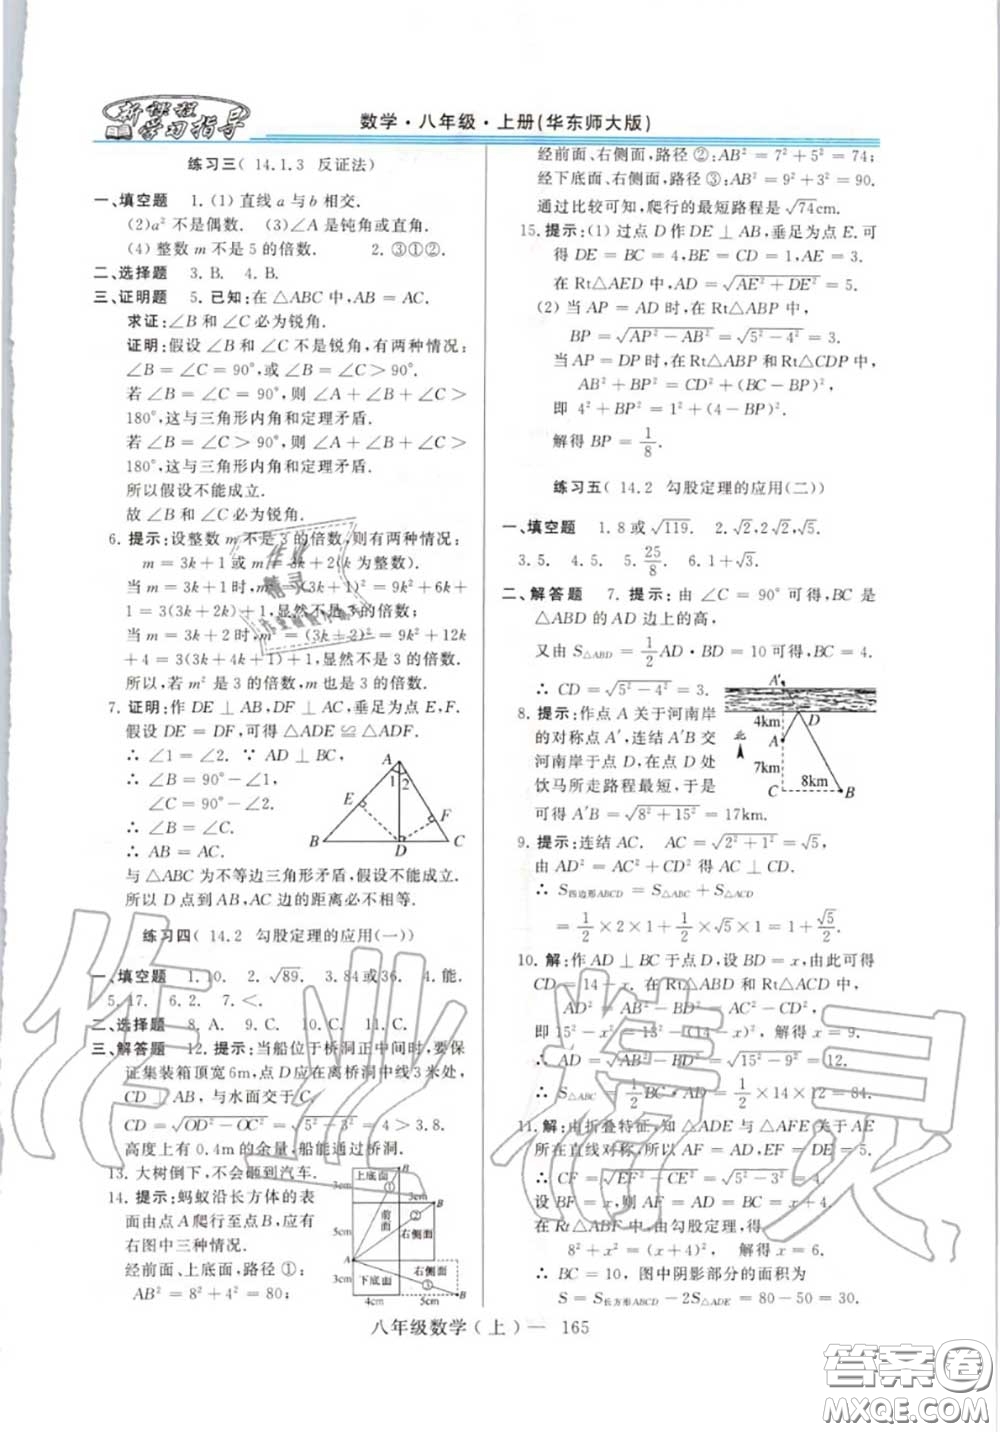 新课程
学习指导
数学·八年级·上册(华东师大版)
练习三(14.1.3 反证法)
一、填空题 1.(1)直线a与b相交.
(2)a²不是偶数. (3)∠A是钝角或直角.
(4)整数m不是5的倍数. 2.③①②.
二、选择题 3.B. 4.B.
三、证明题 5.已知:在△ABC中,AB=AC.
求证:∠B和∠C必为锐角.
证明:假设∠B和∠C不是锐角,有两种情况:
∠B=∠C=90°,或∠B=∠C>90°.
若∠B=∠C=90°,则∠A+∠B+∠C>
180°,这与三角形内角和定理矛盾.
若∠B=∠C>90°,则∠A+∠B+∠C>
180°,这与三角形内角和定理矛盾.
所以假设不能成立.
故∠B和∠C必为锐角.
6.提示:设整数m不是3的倍数,则有两种情况:
m=3k+1或m=3k+2(k为整数).
当m=3k+1时,m²=(3k+1)²=9k²+6k+
1=3(3k²+2k)+1,显然不是3的倍数;
当m=3k+2时,m²=(3k+2)²=9k²+12k
+4=3(3k²+4k+1)+1,显然不是3的倍数.
所以,若m²是3的倍数,m也是3的倍数.
7.证明:作DE⊥AB,DF⊥AC,垂足为点E,F.
假设DE=DF,可得△ADE≌△ADF.
∴∠1=∠2. ∵AD⊥BC,
∴∠B=90°-∠1,
∠C=90°-∠2.
∴∠B=∠C.
∴AB=AC.
A
1
2
E
F
B
D
C
与△ABC为不等边三角形矛盾,假设不能成立.
所以D点到AB,AC边的距离必不相等.
练习四(14.2 勾股定理的应用(一))
一、填空题 1.10. 2.√89. 3.84或36. 4.能.
5.17. 6.2. 7.<.
二、选择题 8.A. 9.C. 10.C. 11.C.
三、解答题 12.提示:当船位于桥洞正中间时,要保
证集装箱顶宽6m,点D应在离桥洞中线3米处,
CD⊥AB,与水面交于C.
CD=√(OD²-OC²)=√(5²-3²)=4>3.8.
高度上有0.4m的余量,船能通过桥洞.
13.大树倒下,不会砸到汽车.
14.提示:蚂蚁沿长方体的表
面由点A爬行至点B,应有
右图中三种情况.
经前面、上底面,路径①:
AB²=8²+4²=80;
3cm
上底面
①
3cm
B
前面
②
5cm
右侧面
A
3cm
下底面
右侧面
③
4cm
5cm
B
经前面、右侧面,路径②:AB²=7²+5²=74;
经下底面、右侧面,路径③:AB²=9²+3²=90.
通过比较可知,爬行的最短路程是√74cm.
15.提示:(1)过点D作DE⊥AB,垂足为点E.可
得DE=BC=4,BE=CD=1,AE=3.
在Rt△AED中,AD=√(AE²+DE²)=5.
(2)当AP=AD时,在Rt△ABP中,
BP=√(AP²-AB²)=√(5²-4²)=3.
当AP=DP时,在Rt△ABP和Rt△CDP中,
AB²+BP²=CD²+(BC-BP)²,
即4²+BP²=1²+(4-BP)².
解得BP=1/8.
练习五(14.2 勾股定理的应用(二))
一、填空题 1.8或√119. 2.√2,2√2,√5.
3.5. 4.5. 5.25/8. 6.1+√3.
二、解答题 7.提示:由∠C=90°可得,BC是
△ABD的AD边上的高,
又由S△ABD=1/2AD·BD=10可得,AC=4.
∴CD=√(5²-4²)=3.
8.提示:作点A关于河南岸
的对称点A′,连结A′B交
河南岸于点D,在点D处
饮马所走路程最短,于是
可得A′B=√(8²+15²)=17km.
A′
4km
D
北
A
7km
8km
C
B
9.提示:连结AC. AC=√(2²+1²)=√5,
由AD²=AC²+CD²得AC⊥CD.
∴S四边形ABCD=S△ABC+S△ACD
=1/2×2×1+1/2×√5×1=1+√5/2.
10.解:作AD⊥BC于点D,设BD=x,由此可得
CD=14-x.在Rt△ABD和Rt△ACD中,
AD²=AB²-BD²=AC²-CD²,
即15²-x²=13²-(14-x)²,解得x=9.
∴AD=√(AB²-BD²)=√(15²-9²)=12.
∴S△ABC=1/2BC·AD=1/2×14×12=84.
11.解:由折叠特征,知△ADE与△AFE关于AE
所在直线对称,所以AF=AD,EF=DE=5.
∴CF=√(EF²-CE²)=√(5²-3²)=4.
设BF=x,则AF=AD=BC=x+4.
在Rt△ABF中,由勾股定理,得
8²+x²=(x+4)², 解得x=6.
∴BC=10,图中阴影部分的面积为
S=S长方形ABCD-2S△ADE=80-50=30.
八年级数学(上)— 165
作业精灵
答案卷
MXQE.COM